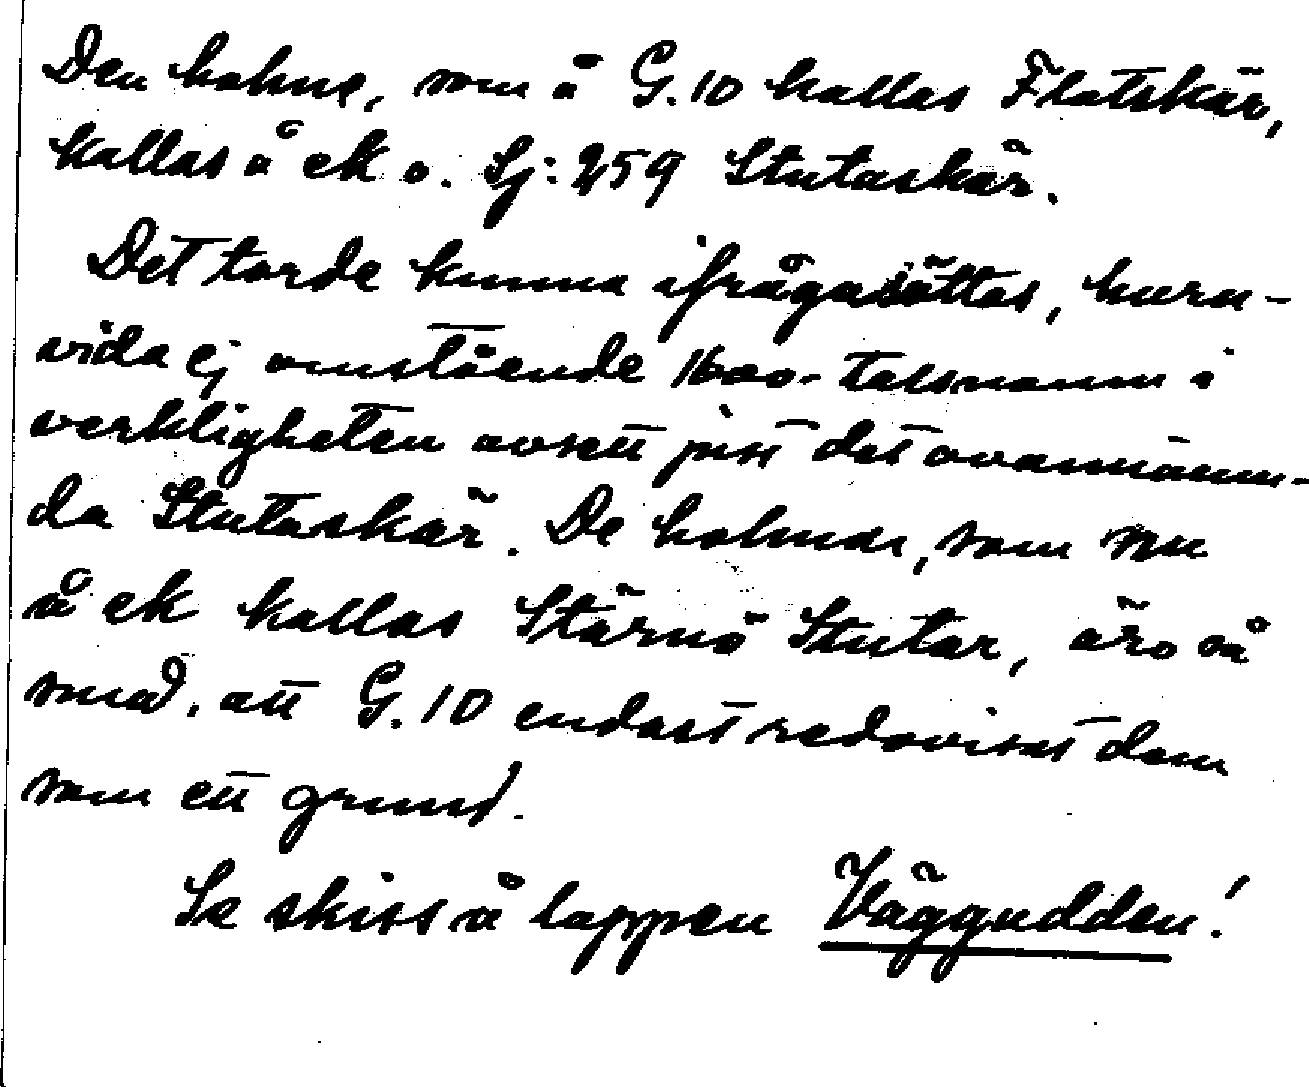 Den holme, som å G.10 kallas Flatskär,
kallas å ek o. Sj: 259 Stutaskär.
Det torde kunna ifrågasättas, huru-
vida ej omstående 1600-talsnamn i
verkligheten avsett just det ovannämn-
da Stutaskär. De holmar, som nu
å ek kallas Stärnö Stutar, äro så
små, att G.10 endast redovisat dem
som ett grund.
Se skiss å lappen Väggudden!